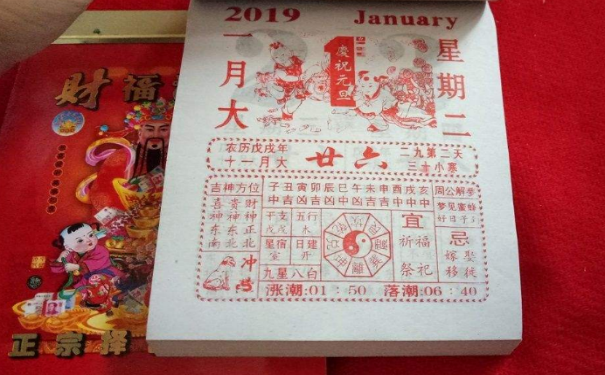 2019 January
一月大
1
慶祝元旦
星期二
农历戊戌年
十一月大
廿六
一九第二天
三十小寒
吉神方位
喜神东南
贵神东北
财神正北
子丑寅卯辰巳午未申酉戌亥
中吉凶吉凶凶凶吉吉中中中
周公解夢
干支
戊戌
五行
木
星宿
室
日建
开
九星八白
冲
宜
祈福
祭祀
忌
嫁娶
移徙
涨潮:01:50 落潮:06:40
财福
正宗择